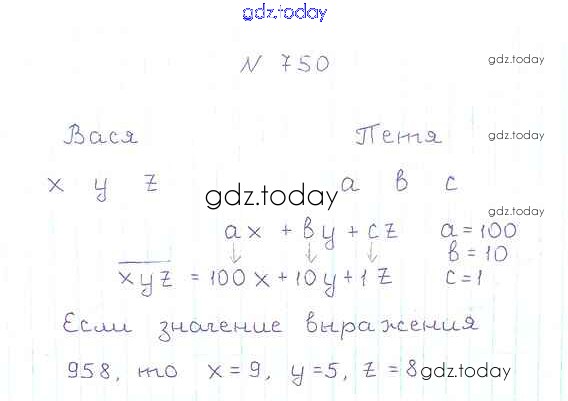 gdz.today
N 750 gdz.today
Вася Петя gdz.today
x y z gdz.today a b c
ax + by + cz a = 100 gdz.today
↓ ↓ ↓ b = 10
xyz = 100x + 10y + 1z c = 1
Если значение выражения
958, то x = 9, y = 5, z = 8 gdz.today